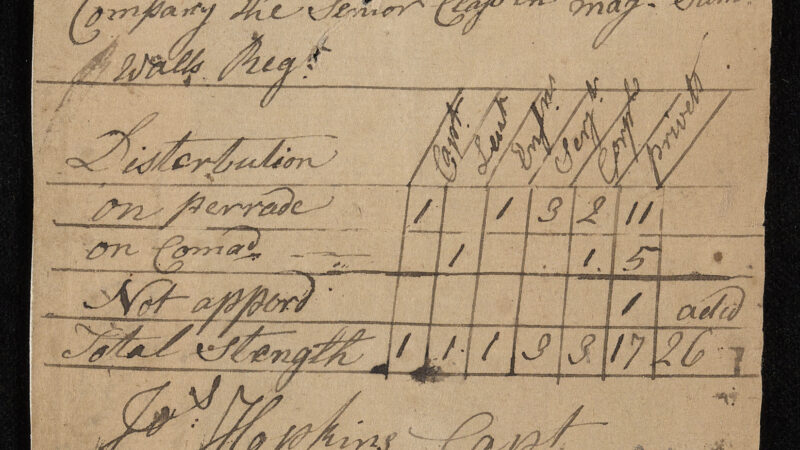 Company the Senior Class in Maj. Sam.
Walls Regt
Disterbution Capt. Leut Ensns Serjts Corpls Privets
on perrade 1 1 3 2 11
on Comad 1 1 5
Not apperd 1 aded
Total Stength 1 1 1 3 3 17 26
Jos Hopkins Capt